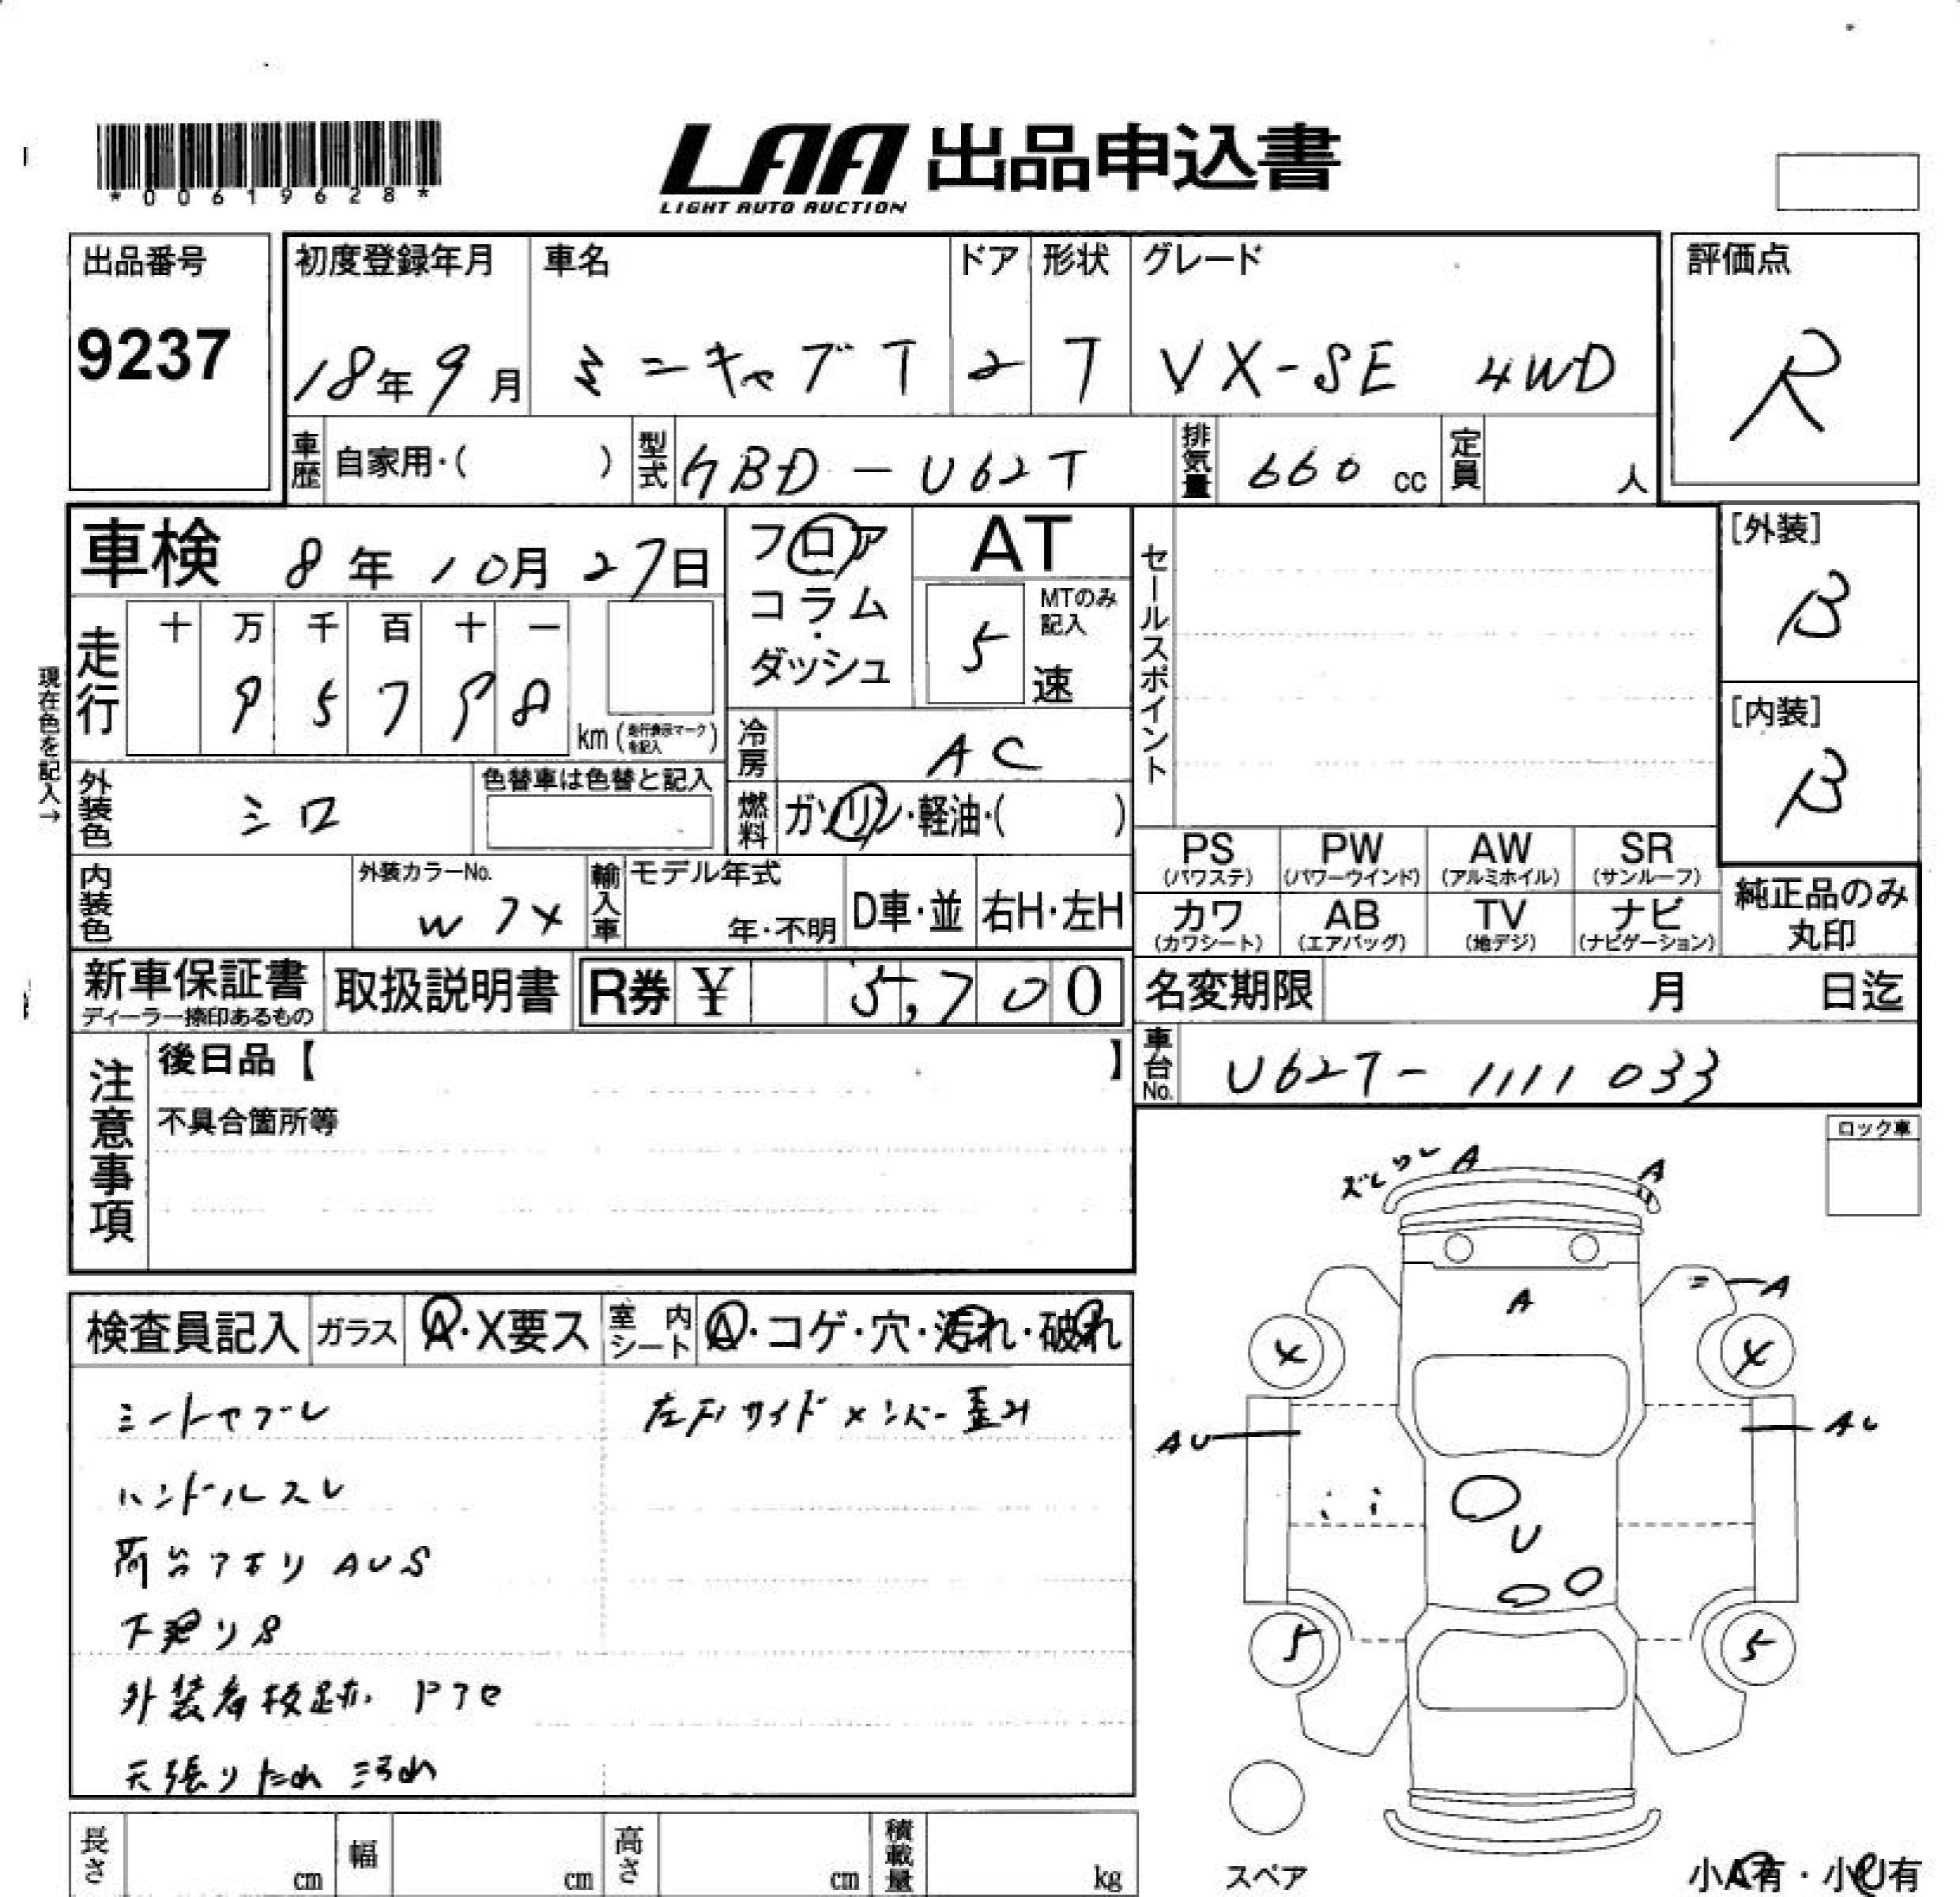 *00619628*
LAA 出品申込書
LIGHT AUTO AUCTION
出品番号
9237
初度登録年月
18年9月
車名
ミニキャブT
ドア
2
形状
T
グレード
VX-SE 4WD
評価点
R
車歴 自家用・( )
型式 GBD-U62T
排気量 660 cc
定員 人
車検 8年10月27日
フロア
コラム
・
ダッシュ
AT
5
MTのみ
記入
速
セールスポイント
[外装]
B
[内装]
B
現在色を記入→
走行
十 万 千 百 十 一
9 5 7 9 8
km (走行表示マークを記入)
冷房 AC
外装色 シロ
色替車は色替と記入
燃料 ガソリン・軽油・( )
PS (パワステ)
PW (パワーウインド)
AW (アルミホイル)
SR (サンルーフ)
カワ (カワシート)
AB (エアバッグ)
TV (地デジ)
ナビ (ナビゲーション)
純正品のみ
丸印
内装色
外装カラーNo.
輸入車
モデル年式
年・不明
D車・並
右H・左H
新車保証書
ディーラー捺印あるもの
取扱説明書
R券 ¥ 5,700
名変期限 月 日迄
車台No. U62T-1111033
注意事項
後日品【 】
不具合箇所等
ロック車
検査員記入
ガラス
A・X要ス
室内シート
A・コゲ・穴・汚れ・破れ
シートヤブレ
ハンドルスレ
荷台アオリ AUS
下廻りS
天張りたれ 汚れ
左右サイドメンバー歪み
ズレ ワレ A
A
A
A
AU
AU
U
5
5
スペア
小A有・小U有
長さ cm
幅 cm
高さ cm
積載量 kg